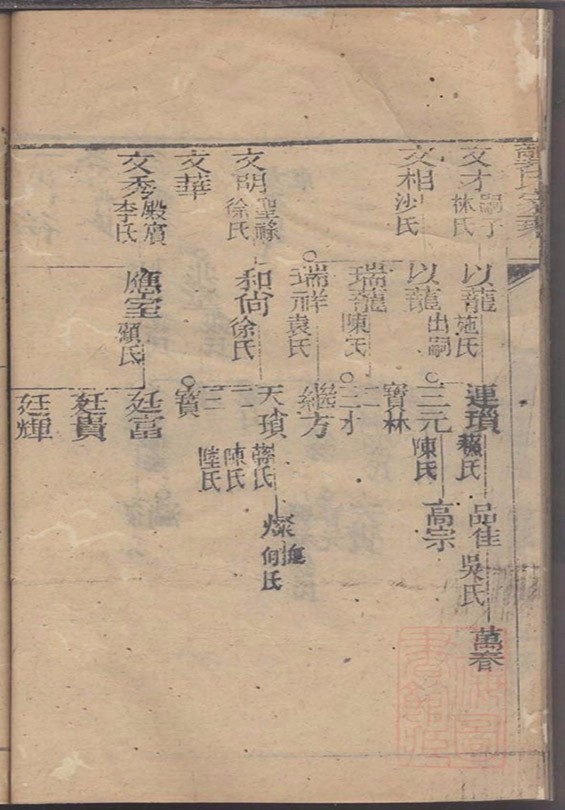 文才 嗣子 林氏
以龍 施氏
連瑣 蘇氏
品佳 吳氏
萬春
文相 沙氏
以龍 出嗣
三元 陳氏
高宗
瑞龍 陳氏
寶林
二
三才
瑞祥
瑞元 袁氏
繼方
文明 聖祿 徐氏
和尙 徐氏
天瑣
陳氏
陸氏
燦 何氏
二
三
寶
文華
文秀 殿賓 李氏
應室 顧氏
廷富
廷貴
廷輝